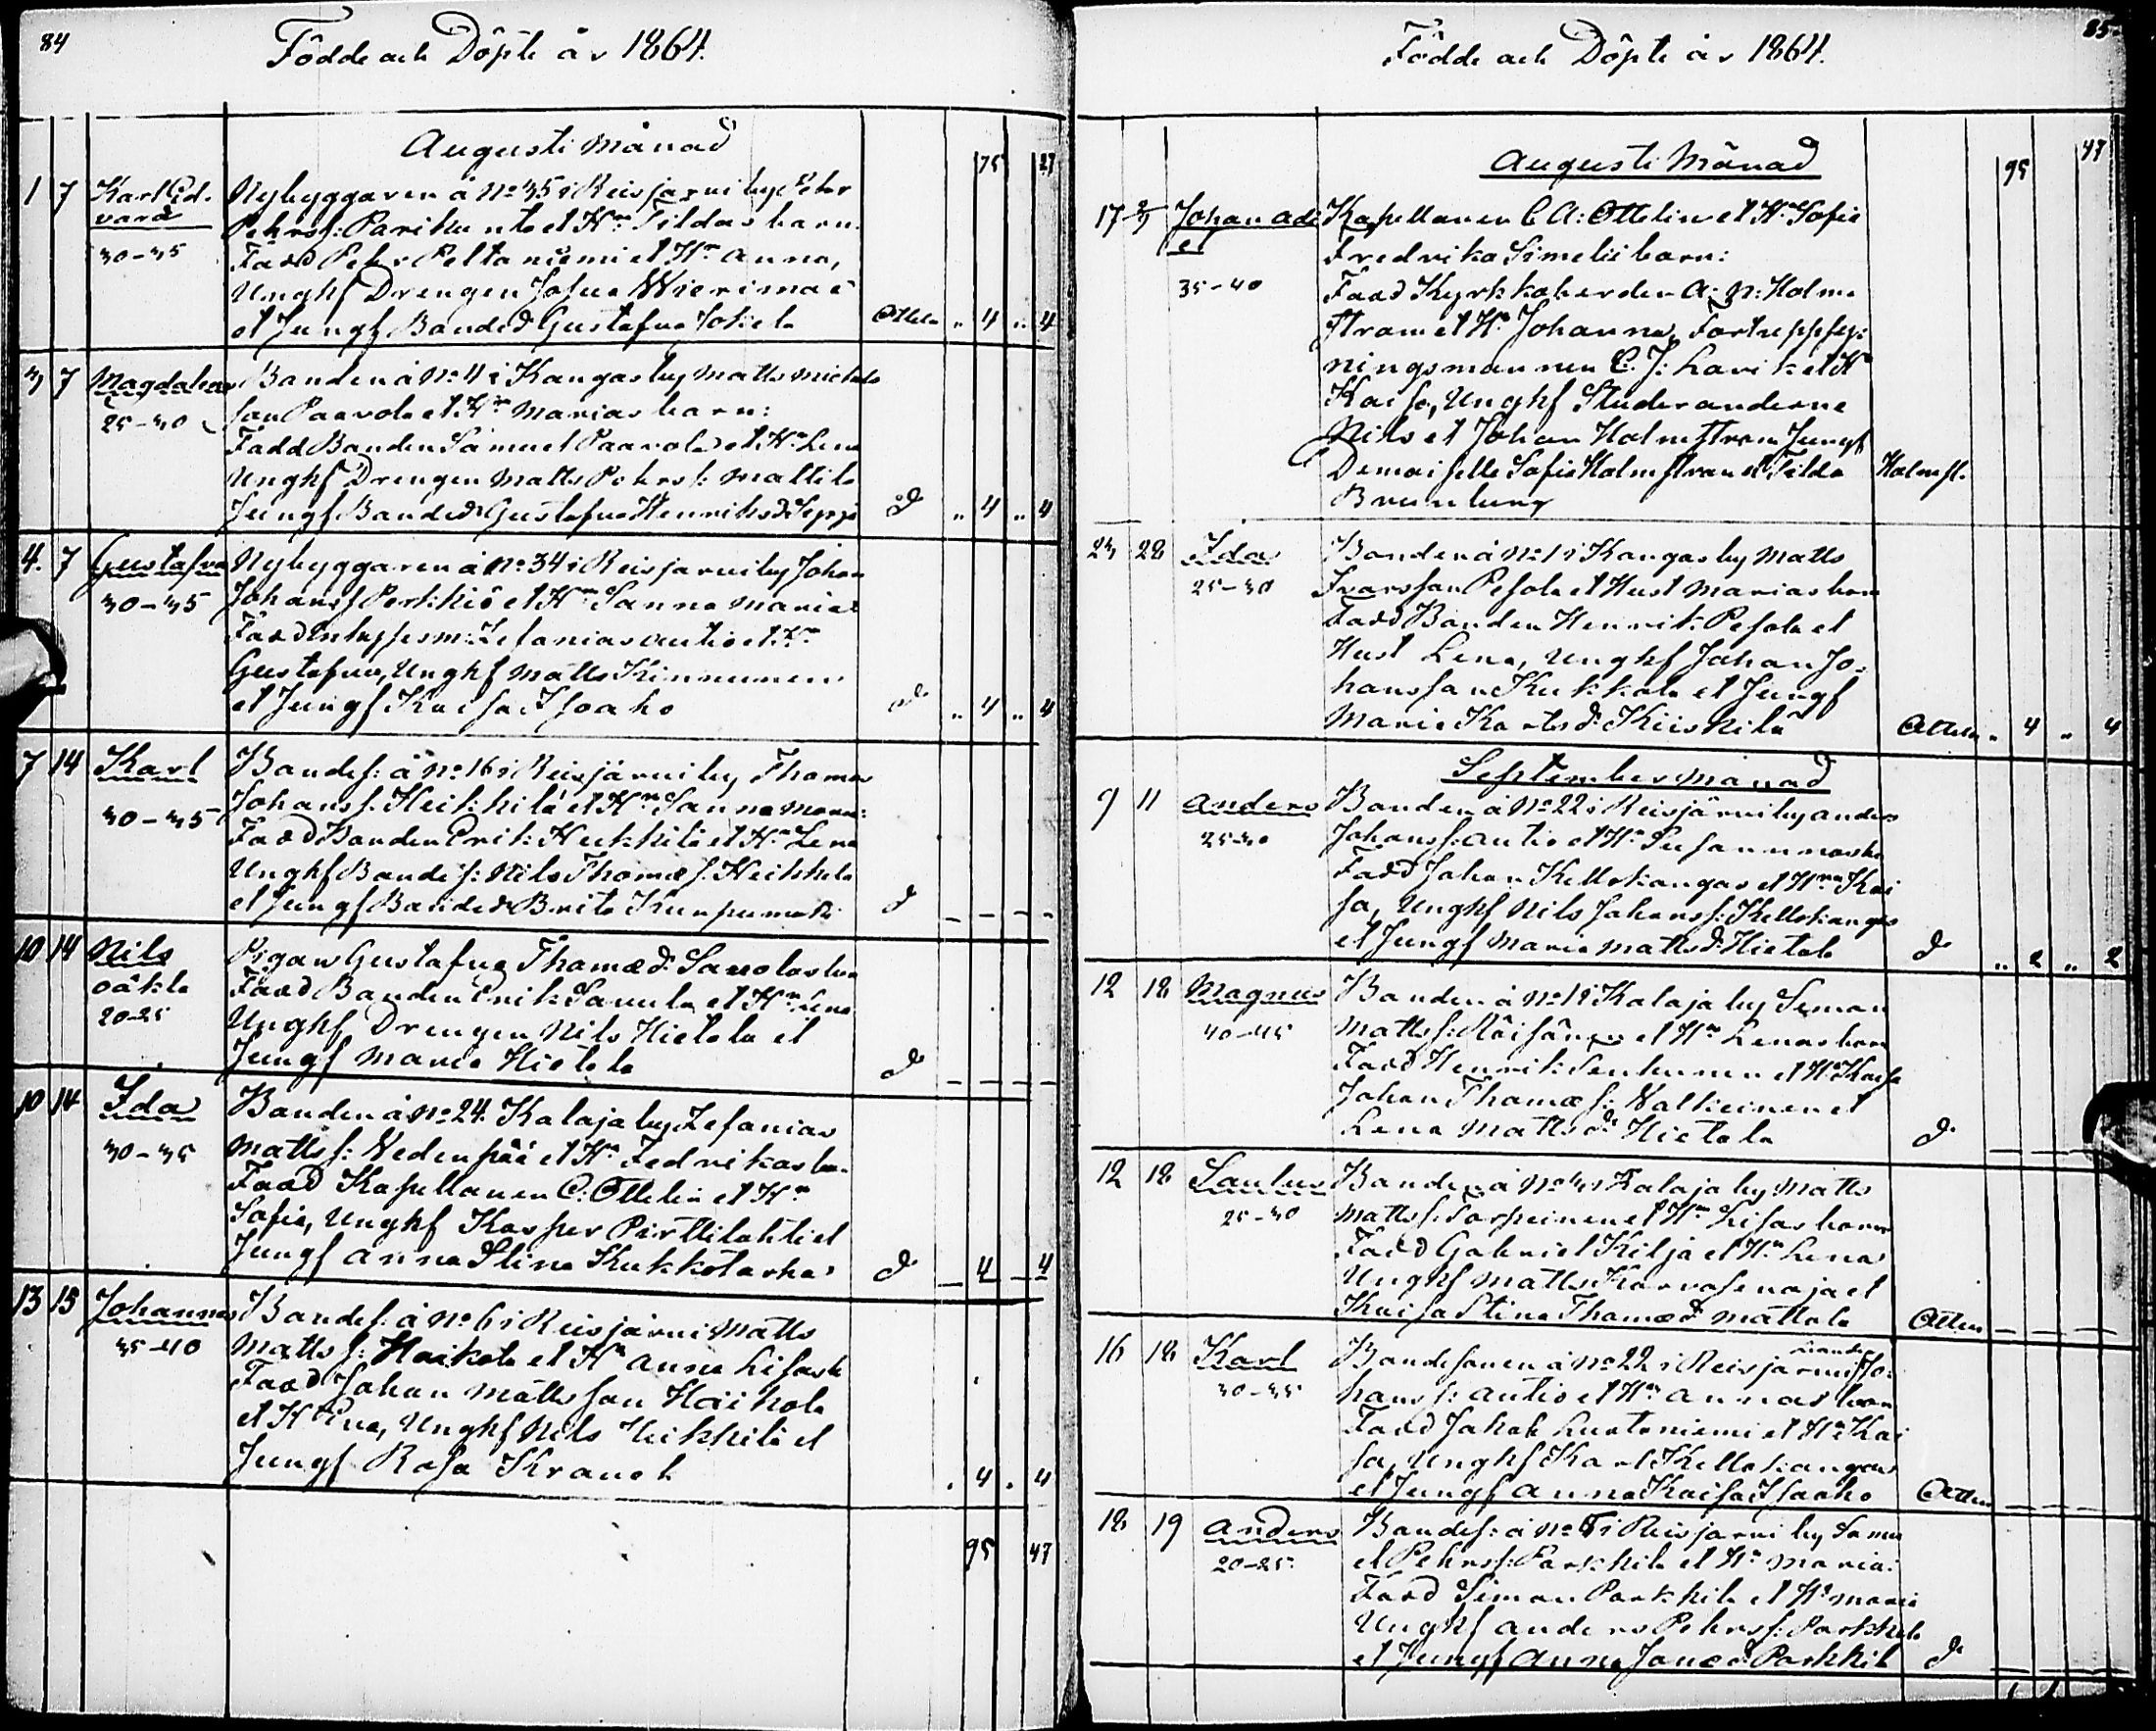 84
Födde och Döpte år 1864.
Augusti Månad
75 27
1 7 Karl Ed-
vard
30-35
Nybyggaren å No 35 i Reisjärvi by Pehr
Pehrsf: Parikunta et Hu Tildas barn.
Fadd Pehr Peltoniemi et Hu Anna,
Unghf Drengen Josua Wierimaa
et Jungf Bonded Gustafva Jokela
Ottelin „ 4 „ 4
3 7 Magdalena
25-30
Bonden å No 4 i Kangas by Matts Michels
son Paavola et Hu Marias barn:
Fadd Bonden Samuel Paavola et Hu Lena
Unghf Drengen Matts Pehrsf: Mattila
Jungf Bonded Gustafva Henriksd Seppä
d „ 4 „ 4
4. 7 Gustafva
30-35
Nybyggaren å No 34 i Reisjärvi by Johan
Johansf Perkkiö et Hu Sanna Marias
Fadd Inhysesm: Zefanias Autio et Hu
Gustafva, Unghf Matts Kinnunen
et Jungf Kaisa Isoaho
d „ 4 „ 4
7 14 Karl
30-35
Bondes: å No 16 i Reisjärvi by Thomas
Johansf. Heikkilä et Hu Sanna Maria:
Fadd Bonden Erik Heikkilä et Hu Lena
Unghf Bondes: Nils Thomæf. Heikkilä
et Jungf Bonded Brita Kumpumäki
d - - - -
10 14 Nils
oäkta
20-25
Pigan Gustafva Thomæd. Savolas bn
Fadd Bonden Erik Savula et Hu Lena
Unghf Drengen Nils Hietala et
Jungf Maria Hietala
d - - - -
10 14 Ida
30-35
Bonden å No 24. Kalaja by Zefanias
Mattsf: Vedenpää et Hu Fedrikas bn.
Fadd Kapellanen C: Ottelin et Hu
Sofia, Unghf Kasper Pirttilahti et
Jungf Anna Stina Kukkotarha
d - 4 - 4
13 15 Johannes
35-40
Bondes. å No 6 i Reisjärvi Matts
Mattsf: Haikola et Hu Anna Lisas b
Fadd Johan Mattsson Haikola
et H Eva, Unghf Nils Heikkilä et
Jungf Rosa Kranck
. 4 . 4
95 47
85
Födde och Döpte år 1864.
Augusti Månad
95 47
17 Johan Adi
el
35-40
Kapellanen C A: Ottelin et Hu Sofia
Fredrika Simelii barn:
Fadd Kyrkkoherden A: N: Holm-
ström et Hu Johanna, Fortepp­sy:
ningsmannen C. J: Lavik et Hu
Kaisa, Unghf Studeranderne
Nils et Johan Holmström Jungf
Demoiselle Sofia Holmström et Tilda
Brunlung
Holmst.
23 28 Ida
25-30
Bonden å No 1 i Kangas by Matts
Ivarsson Pesola et Hust Marias barn
Fadd Bonden Henrik Pesola et
Hust Lena, Unghf Johan Jo-
hansson Kukkola et Jungf
Maria Karlsd Kiiskilä
Ottelin „ 4 „ 4
September Månad
9 11 Anders
25-30
Bonden å No 22 i Reisjärvi by Anders
Johansf: Autio et Hu Susannas bn
Fadd Johan Kellokangas et Hru Kai
sa, Unghf Nils Johansf: Kellokangas
et Jungf Maria Mattsd Hietala
d „ 2 „ 2
12 18 Magnus
40-45
Bonden å No 1 i Kalaja by Simon
Mattsf: Räisänen et Hu Lenas barn
Fadd Henrik Leukunen et Hu Kaisa
Johan Thomæf: Valkeinen et
Lena Mattsd Hietala
d
12 18 Saulus
25-30
Bonden å No 4 i Kalaja by Matts
Mattsf: Torpeinen et Hu Lisas barn
Fadd Gabriel Kilja et Hu Lena
Unghf Matts Karvosenoja et
Kaisa Stina Thomæd Mattola
Ottelin - - -
16 18 Karl
30-35
Bondesonen å No 22 i Reisjärvi Jo-
hansf: Autio et Hu Annas barn
Fadd Jakob Luotoniemi et Hu Kai
sa, Unghf Karl Kellokangas
et Jungf Anna Kaisa Isoaho
Ottelin - - -
18 19 Anders
20-25
Bondes: å No 5 i Reisjärvi by Samu
el Pehrsf: Parkkila et Hu Maria:
Fadd Simon Parkkila et Hu Maria
Unghf Anders Pehrsf: Parkkila
et Jungf Anna Jonæd Parkkil
d